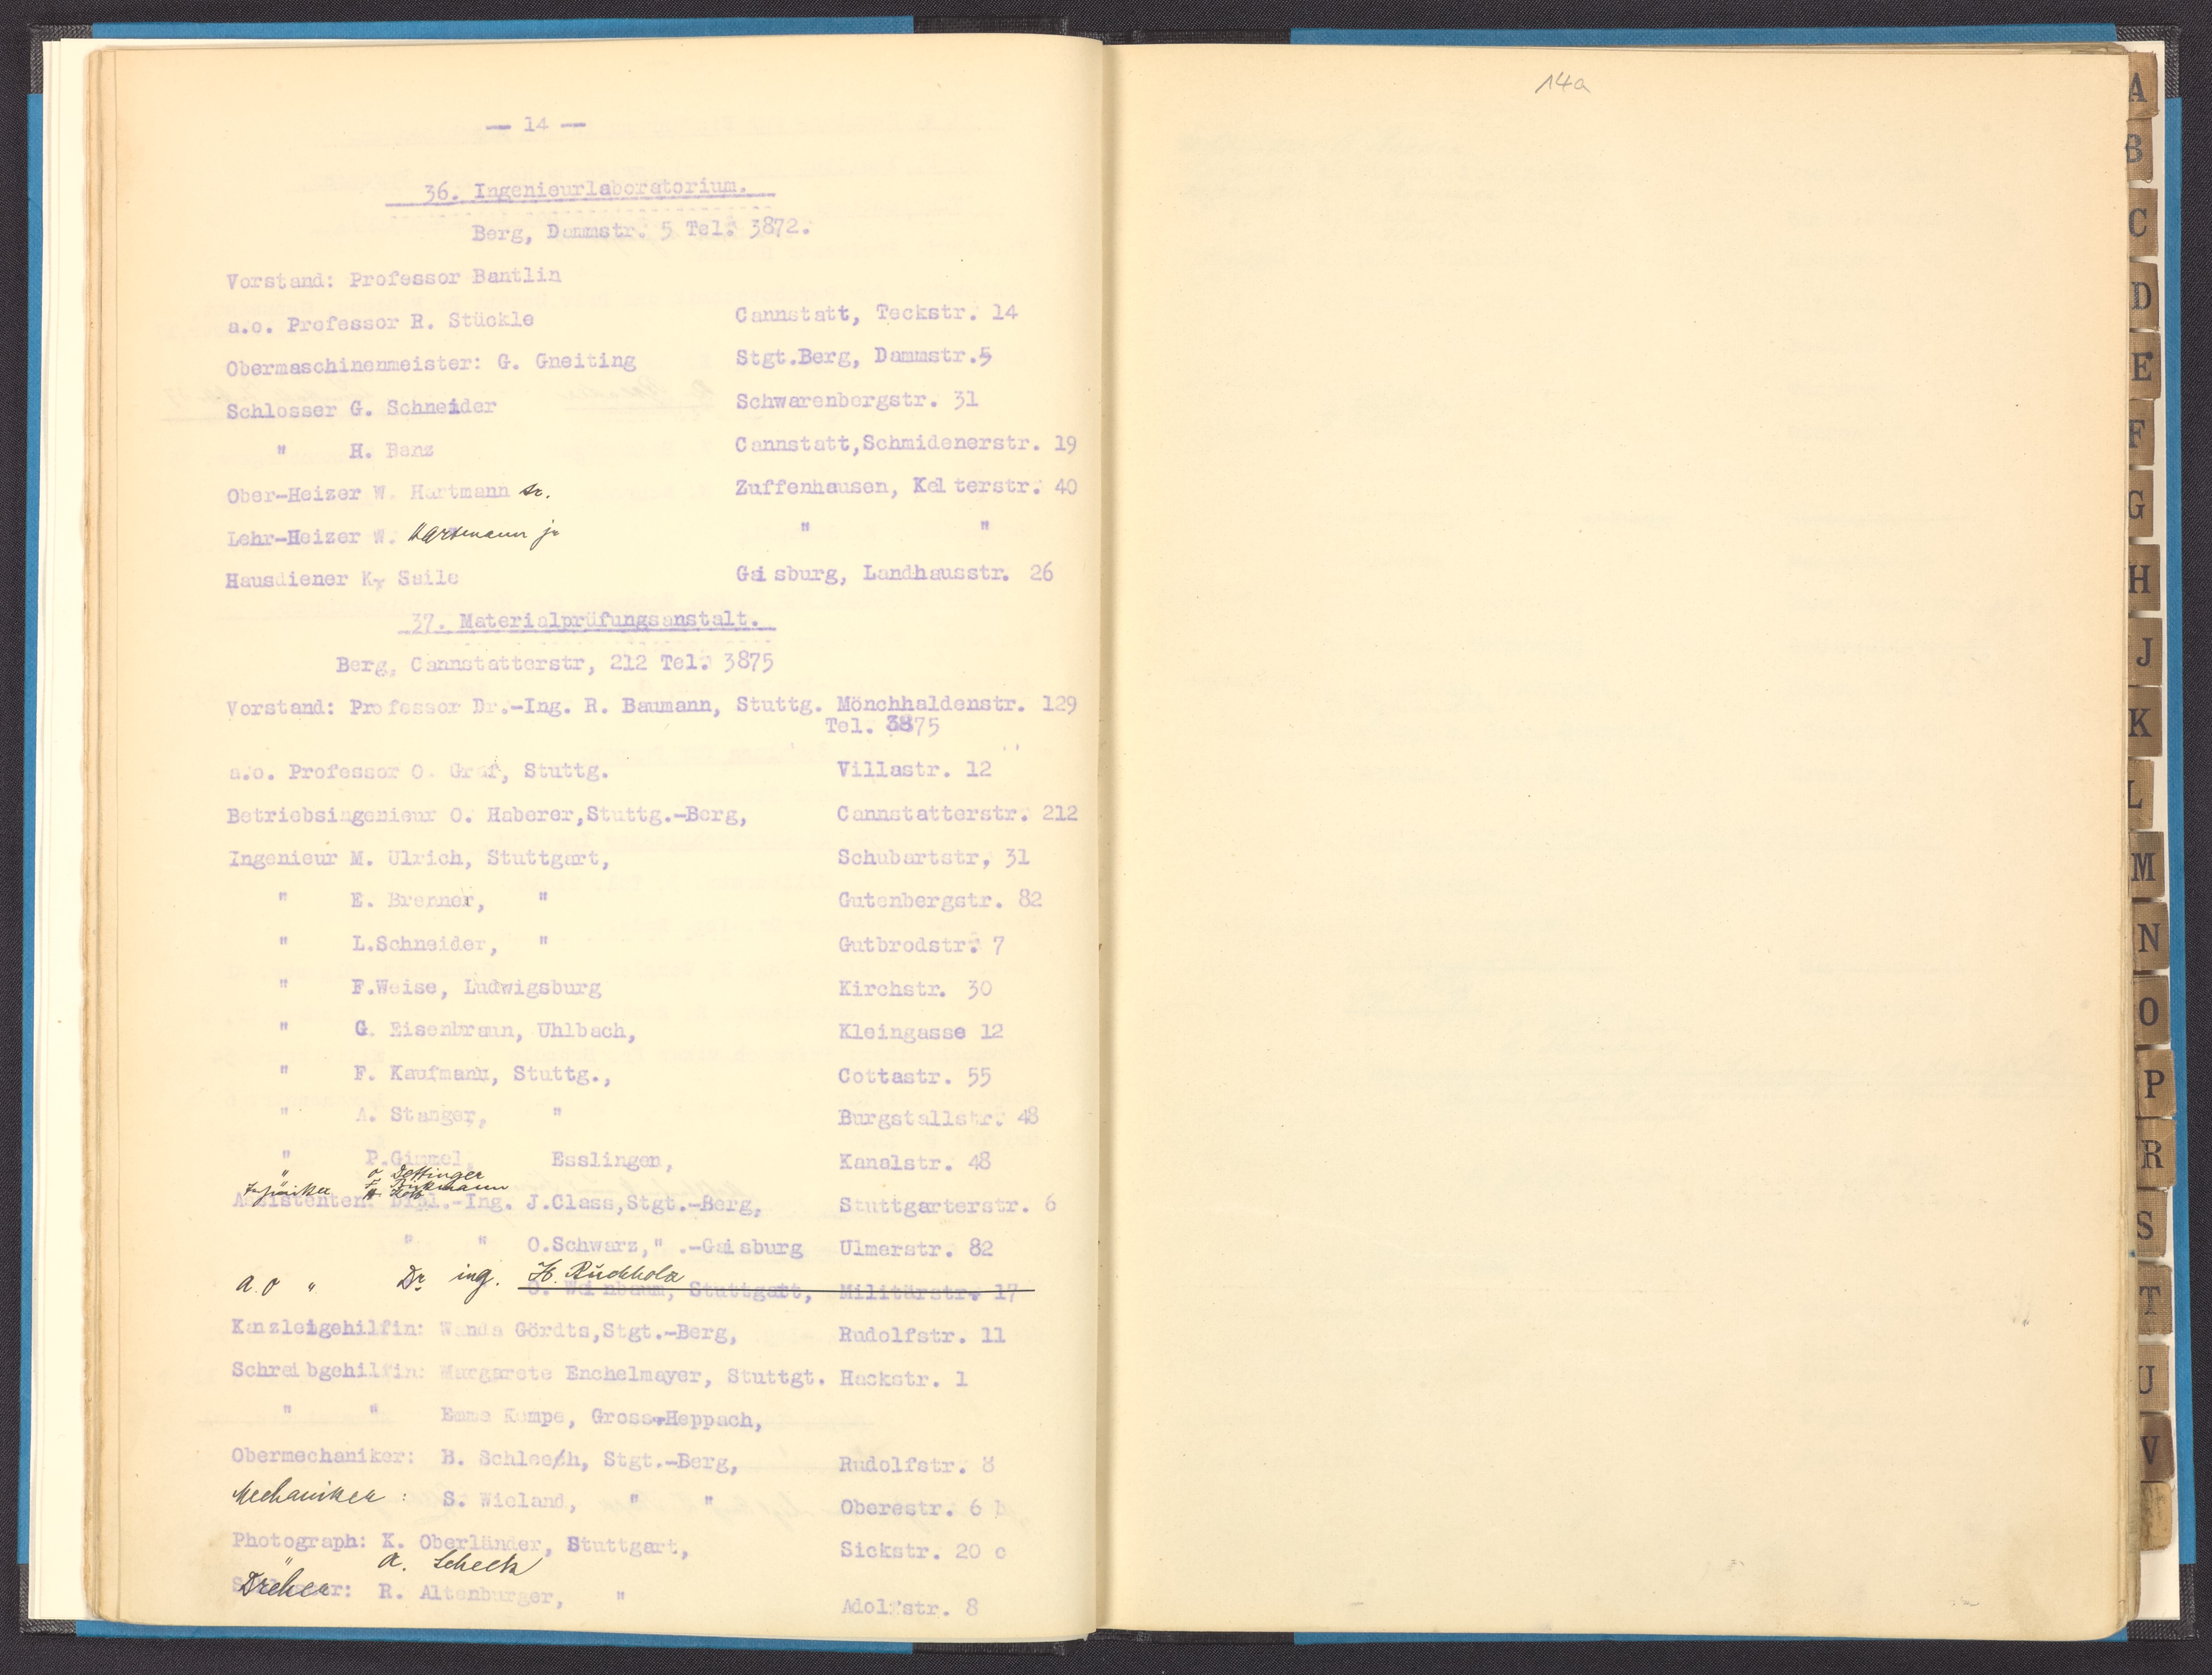 — 14 —
36. Ingenieurlaboratorium.
Berg, Dammstr. 5 Tel. 3872.
Vorstand: Professor Bantlin
a.o. Professor R. Stückle Cannstatt, Teckstr. 14
Obermaschinenmeister: G. Gneiting Stgt.Berg, Dammstr.5
Schlosser G. Schneider Schwarenbergstr. 31
" H. Banz Cannstatt,Schmidenerstr. 19
Ober-Heizer W. Hartmann sr. Zuffenhausen, Kelterstr. 40
Lehr-Heizer W. Hartmann jr " "
Hausdiener K. Saile Gaisburg, Landhausstr. 26
37. Materialprüfungsanstalt.
Berg, Cannstatterstr, 212 Tel. 3875
Vorstand: Professor Dr.-Ing. R. Baumann, Stuttg. Mönchhaldenstr. 129
Tel. 3875
a.o. Professor O. Graf, Stuttg. Villastr. 12
Betriebsingenieur O. Haberer,Stuttg.-Berg, Cannstatterstr. 212
Ingenieur M. Ulrich, Stuttgart, Schubartstr, 31
" E. Brenner, " Gutenbergstr. 82
" L.Schneider, " Gutbrodstr. 7
" F.Weise, Ludwigsburg Kirchstr. 30
" G. Eisenbraun, Uhlbach, Kleingasse 12
" F. Kaufmann, Stuttg., Cottastr. 55
" A. Stanger, " Burgstallstr. 48
" P.Gimmel, Esslingen, Kanalstr. 48
" O Dettinger
Assistenten: Dipl.-Ing. J.Class,Stgt.-Berg, Stuttgarterstr. 6
" " O.Schwarz," .-Gaisburg Ulmerstr. 82
a. o " Dr ing. H. Ruckholz
O. Weinbaum, Stuttgart, Militärstr. 17
Kanzleigehilfin: Wanda Gördts,Stgt.-Berg, Rudolfstr. 11
Schreibgehilfin: Margarete Enchelmayer, Stuttgt. Hackstr. 1
" " Emma Kempe, Gross-Heppach,
Obermechaniker: B. Schleeh, Stgt.-Berg, Rudolfstr. 8
Mechaniker : S. Wieland, " " Oberestr. 6 b
Photograph: K. Oberländer, Stuttgart, Sickstr. 20 c
" A. Scheck
Dreher: R. Altenburger, " Adolfstr. 8
14a
A
B
C
D
E
F
G
H
J
K
L
M
N
O
P
R
S
T
U
V